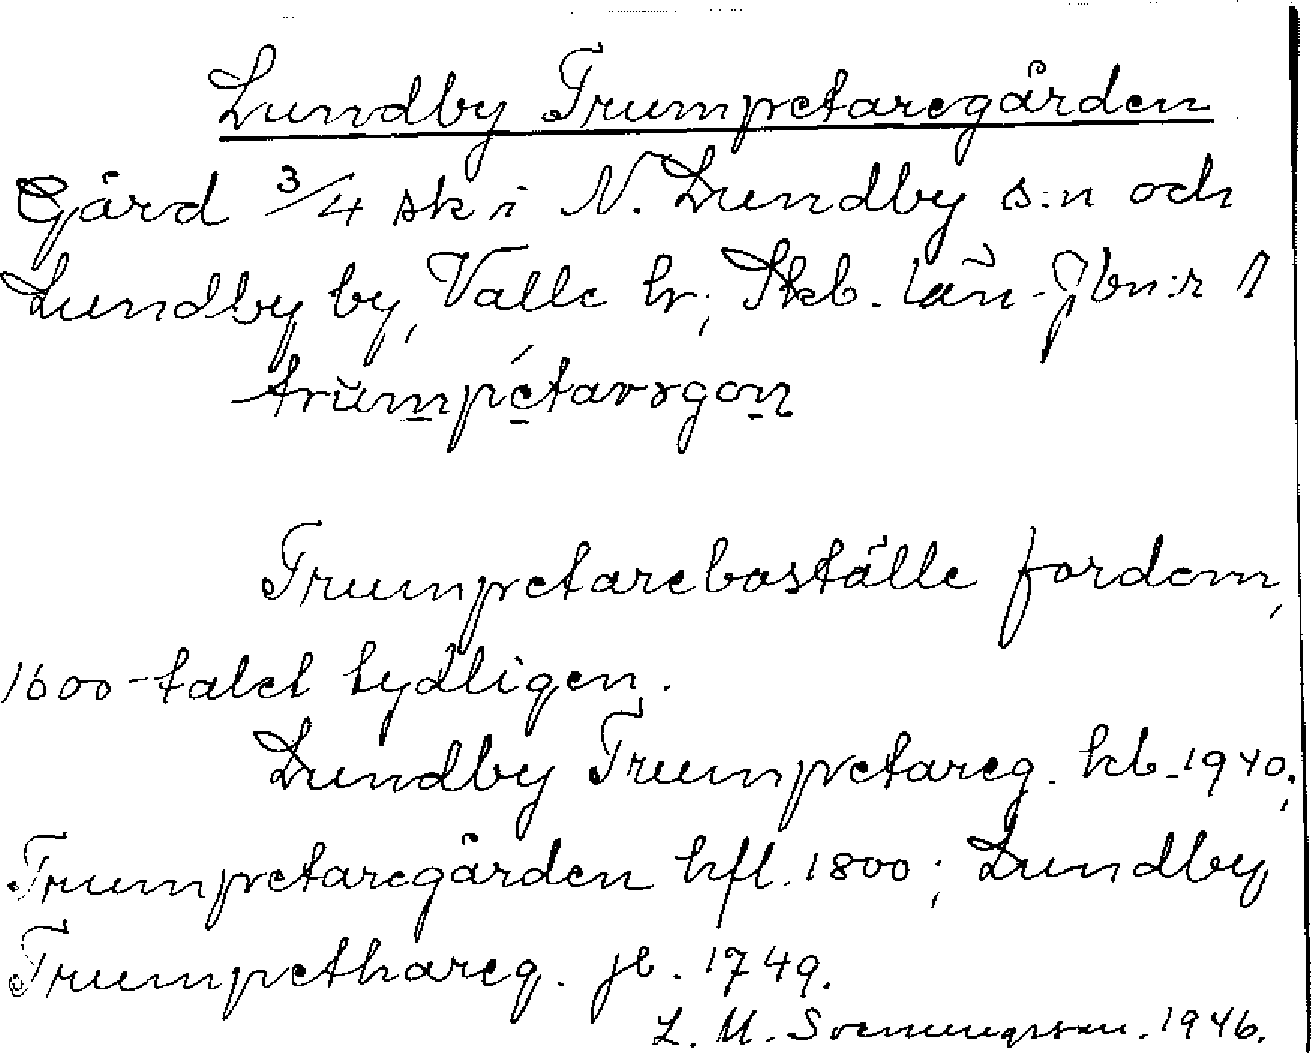 Lundby Trumpetaregården
Gård 3/4 sk i N. Lundby s:n och
Lundby by, Valle hr; Skb. län. Jbn:r 1
trumpétarsgon
Trumpetareboställe fordom,
1600-talet tydligen.
Lundby Trumpetareg. kb. 1940;
Trumpetaregården hfl. 1800; Lundby
Trumpethareg. jb. 1749.
L. M. Svenungsson. 1946.